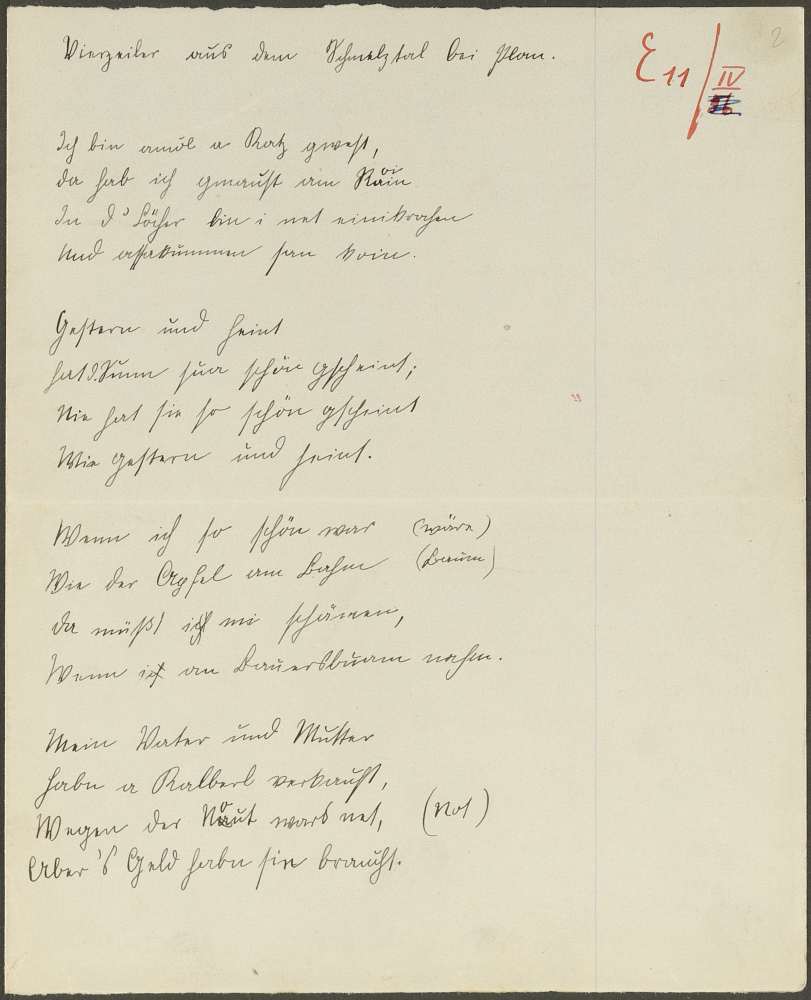 2
E 11/IV
Vierzeiler aus dem Schmelztal bei Plan.
Ich bin amöl a Katz gwest,
da hab ich gmaust am Roin
In d' Löcher bin i net einikrochen
Und assakummen san koin.
Gestern und heint
hat d. Sunn sua schön gscheint;
Nie hat sie so schön gscheint
Wie gestern und heint.
Wenn ich so schön war (wäre)
Wie der Apfel am Bahm (Baum)
da müßt i mi schämen,
Wenn i an Bauersbuam nahm.
Mein Vater und Mutter
habn a Kalberl verkauft,
Wegen der Nout wars net, (Not)
Aber 's Geld habn sie braucht.